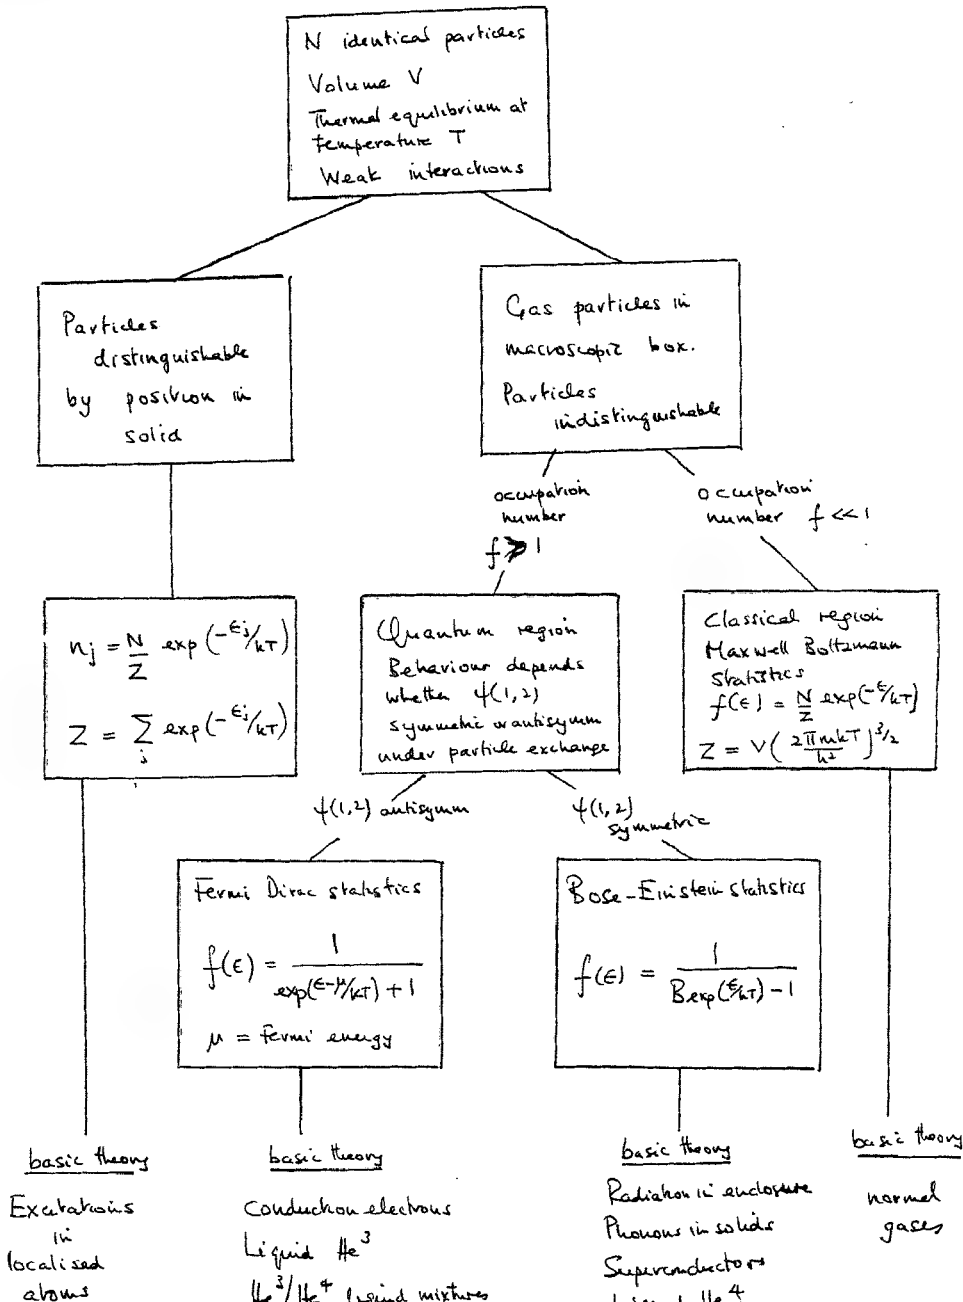 N identical particles
Volume V
Thermal equilibrium at
temperature T
Weak interactions
Particles
distinguishable
by position in
solid
Gas particles in
macroscopic box.
Particles
indistinguishable
occupation
number
f ⩾ 1
occupation
number f << 1
n_j = N/Z exp(-ϵ_j/kT)
Z = Σ_j exp(-ϵ_j/kT)
Quantum region
Behaviour depends
whether ψ(1,2)
symmetric or antisymm
under particle exchange
Classical region
Maxwell Boltzmann
Statistics
f(ϵ) = N/Z exp(-ϵ/kT)
Z = V(2πmkT/h²)^3/2
ψ(1,2) antisymm
ψ(1,2)
symmetric
Fermi Dirac statistics
f(ϵ) = 1/(exp(ϵ-μ/kT) + 1)
μ = Fermi energy
Bose-Einstein statistics
f(ϵ) = 1/(B exp(ϵ/kT) - 1)
basic theory
Excitations
in
localised
atoms
basic theory
Conduction electrons
Liquid He³
He³/He⁴ liquid mixtures
basic theory
Radiation in enclosure
Phonons in solids
Superconductors
Liquid He⁴
basic theory
normal
gases